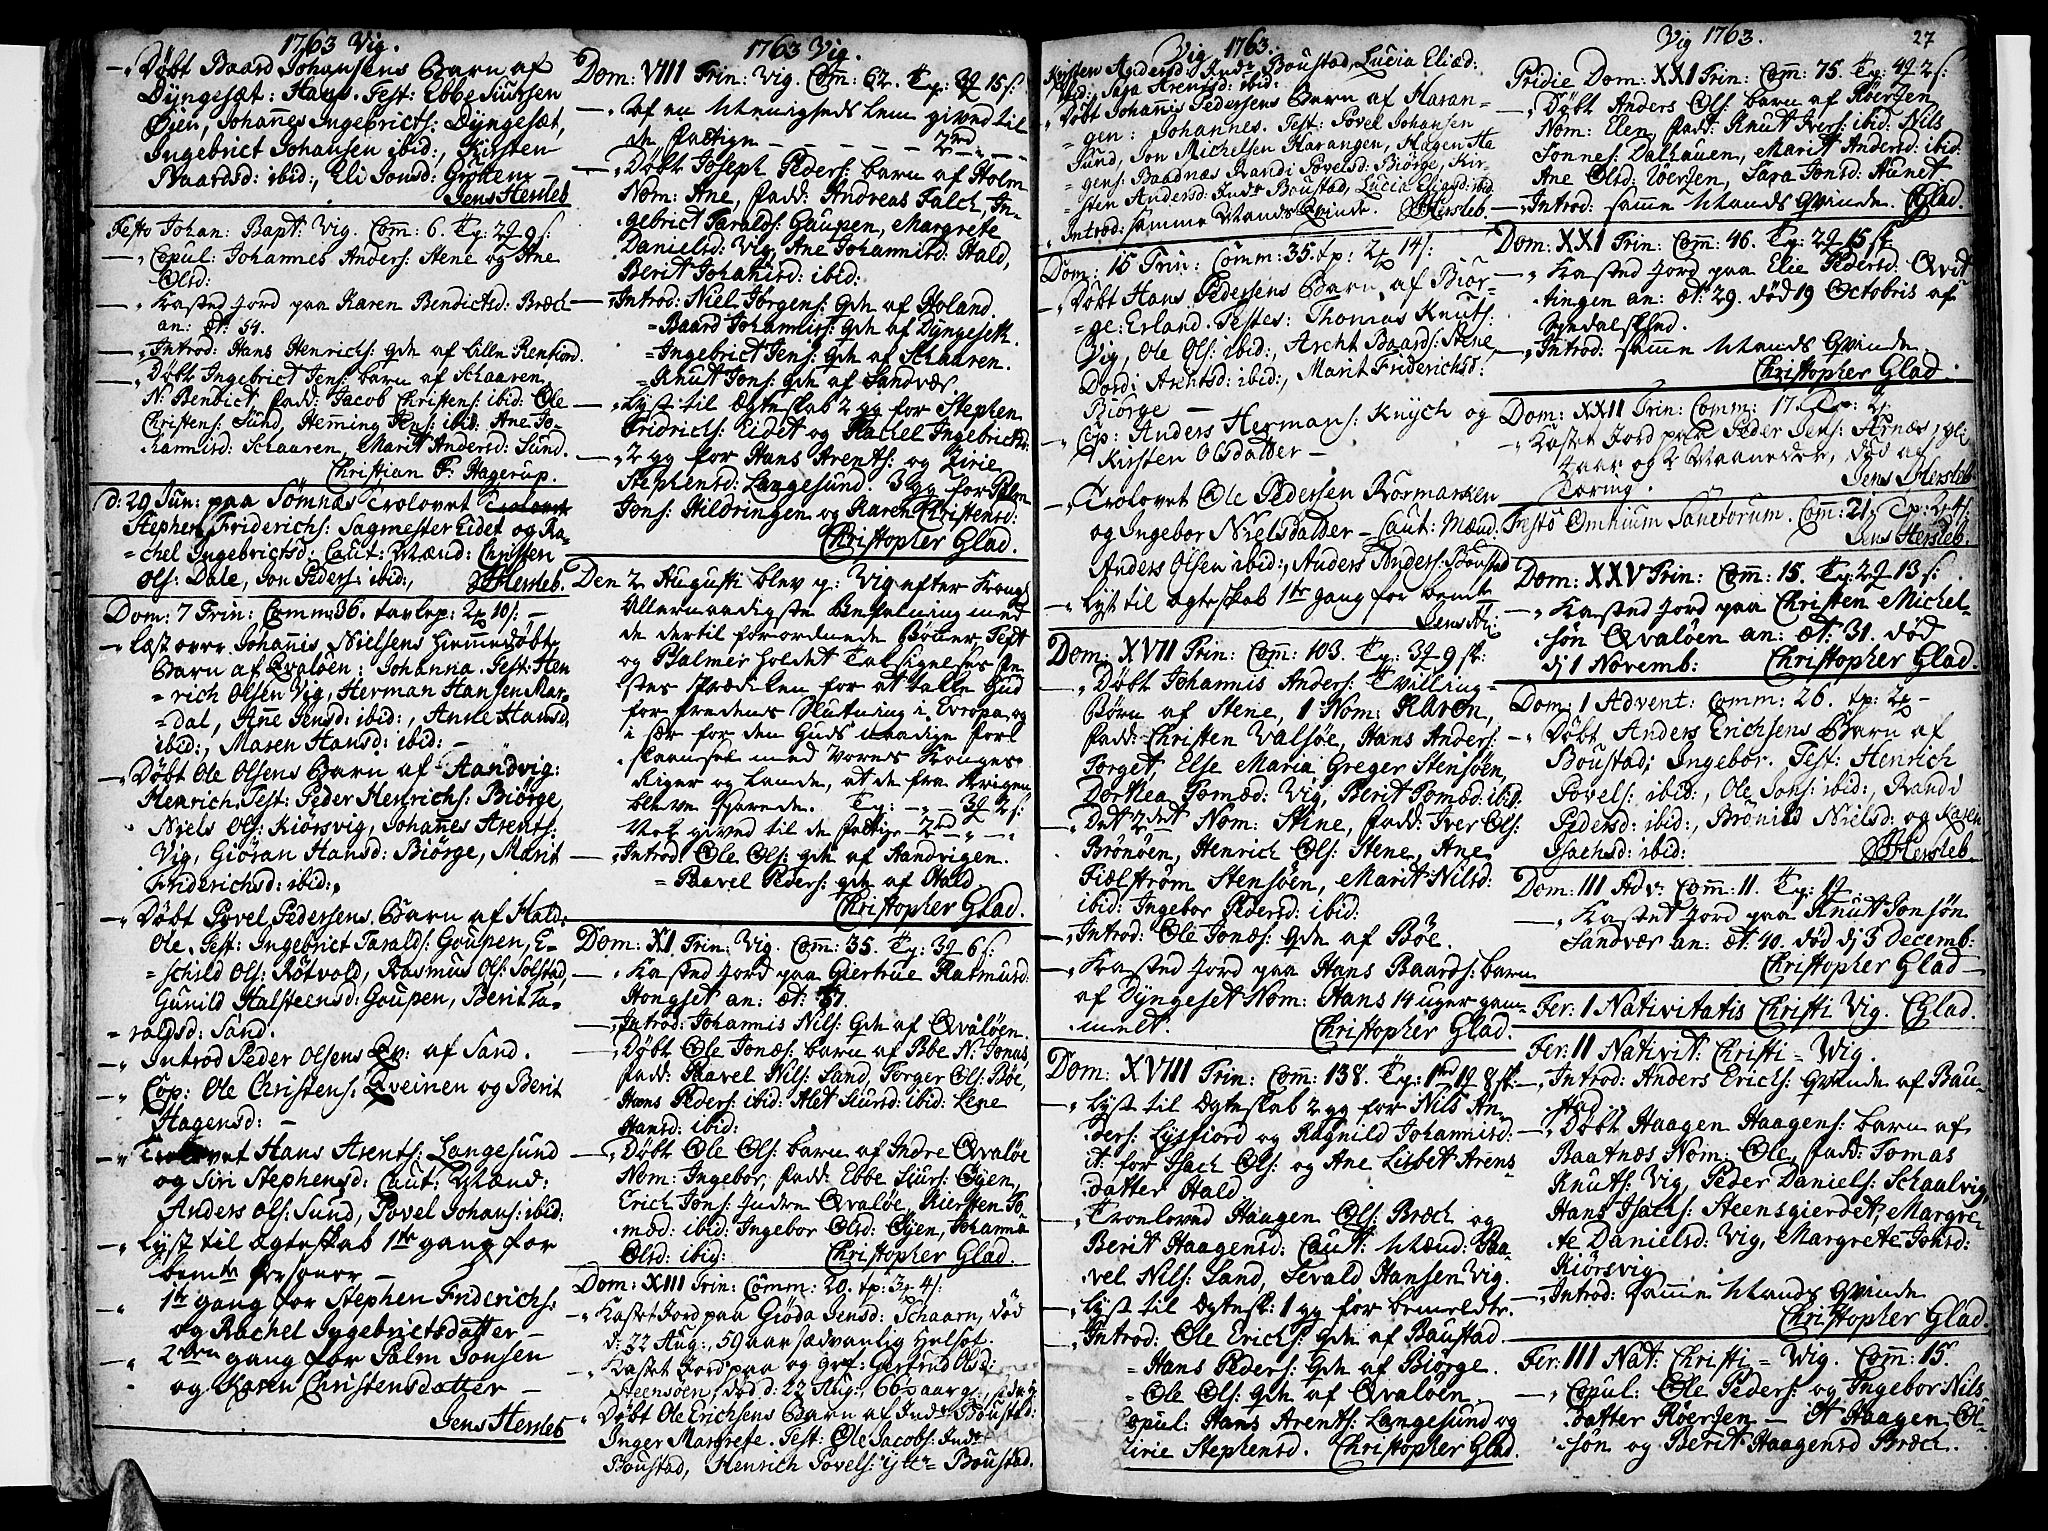 1763 Vig.
Døbt Baard Johansens Barn af
Dÿngesæt: Hans. Test: Ebbe Siursen
Øjen, Johañes Ingebricts: Dÿngesæt,
Ingebrict Johansen ibid:, Kirsten
Baardsd: ibid:, Eli Jonsd: Grøttem
Jens Hersleb
Festo Johan: Bapt: Vig. Com̄: 6. Tg:
Copul: Johannes Anders: Stene og Ane
Olsd:
Kasted Jord paa Karen Bendictsd: Bræch
an: æt: 54.
Introd: Hans Henrichs: qde af Lille Rentiord.
Døbt Ingebrict Jens: barn af Schaaren
N: Bendict fadd: Jacob Christens: ibid: Ole
Christens: Sund, Heming Jens: ibid: Ane Jo-
hannisd: Schaaren, Marit Andersd: Sund.
Christian F: Hagerup.
d: 29 Jun: paa Sømnæs Trolovet
Stephen Friderichs: Sagmester Eidet og Ra-
=chel Ingebrictsd: Caut: Mænd: Christen
Ols: Dale, Jon Peders: ibid:, JHersleb.
Dom: 7 Trin: Comm: 36. tavlep:
Læst over Johañis Nielsens hiemmedøbte
Barn af Qvaløen: Johanna. Test: Hen
=rich Olsen Vig, Herman Hansen Mar-
=dal, Añe Jensd: ibid:, Anne Hansd:
ibid:, Maren Hansd: ibid:
Døbt Ole Olsens Barn af Aandvig:
Henrich. Test: Peder Henrichs: Biørge,
Niels Ols: Kiørsvig, Johañes Arents:
Vig, Giøran Hansd: Biørge, Marit
Friderichsd: ibid:,
Døbt Povel Pedersens Barn af Hald:
Ole. Test: Ingebrict Taralds: Goupen, E-
=schild Ols: Røtvold, Rasmus Ols: Solstad,
Gunild Halsteensd: Goupen, Berit Ta-
=raldsd: Sand.
Introd Peder Olsens Qv: af Sand.
Cop: Ole Christens: Qveinen og Berit
Hagensd:
Trolovet Hans Arents: Langesund
og Siri Stephensd: Caut: Mænd:
Anders Ols: Sund, Povel Johans: ibid:
Lyst til ægteskab 1te gang for
bemte Personer
1te gang for Stephen Friderichs:
og Rachel Ingebrictsdatter
2den gang for Palm Jonsen
og Karen Christensdatter
Jens Hersleb
1763 Vig.
Dom: VIII Trin: Vig. Com̄: 62. Tp: 15 s:
Af en Meenigheds Lem gived til
de fattige 2rd
Døbt Joseph Peders: barn af Holm
Nom: Ane, fadd: Andreas Falch, In-
gebrict Taralds: Gaupen, Margrete
Danielsd: Vig, Ane Johannisd: Hald,
Berit Johanisd: ibid:
Introd: Niel Jørgens: qde af Holand.
=Baard Johannis: qde af Dÿngeseth.
=Ingebrict Jens: qde af Schaaren.
=Knut Jons: qde af Sandvær
Lyst til Ægteskab 2 gg for Stephen
Fridrichs: Eidet og Rachel Ingebrictsd:
2 gg for Hans Arents: og Zirie
Stephensd: Langesund. 3 gg for Palm
Jons: Hildringen og Karen Christensd:
Christopher Glad.
Den 2 Augusti blev p: Vig efter Kongl
Allernaadigste Befalning med
de dertil forordnede Bønner Text
og Psalmer holdet Taksigelses Fe
stes Prædiken for at takke Gud
for fredens Slutning i Evropa og
i sær for den Guds naadige forl
skaansel med vores Konges
Riger og Lande, at de fra Krigen
bleve sparede. Tg:
given til de fattige 2rd
Introd: Ole Ols: qde af Aandvigen.
=Paavel Peders: qde af Hald
Christopher Glad.
Dom: XI Trin: Vig. Com̄: 35. Tg: 6 s:
Kasted Jord paa Giertrue Rasmusd:
Hongset an: æt:
Introd: Johannis Nils: Qde af Qvaløen.
Døbt Ole Jonæs: barn af Bøe N: Jonas
fadd: Paavel Nils: Sand, Torger Ols: Bøe,
Hans Peders: ibid: Alet Siursd: ibid: Lene
Hansd: ibid:
Døbt Ole Ols: barn af Indre Qvaløe
Nom: Ingebor, fadd: Ebbe Siurs: Øjen,
Erich Jons: Indre Qvaløe, Kiersten To-
mæd: ibid: Ingebor Olsd: Øjen, Johanna
Olsd: ibid: Christopher Glad.
Dom: XIII Trin: Comm: 20. tp: 4 s:
Kastet Jord paa Giøda Jensd: Schaarn, død
d: 22 Aug:, 59 aar sædvanlig
Kastet Jord paa og Gertrud Olsd:
Steensøen, død d: 22 Aug:, 66
Døbt Ole Erichsens Barn af Indr Boustad:
Inger Margrete. Test: Ole Jacobs: Indr
Boustad, Henrich Povels: Boustad.
Vig 1763.
Kirsten Andersd: Indr Boustad, Lucia Eliæd:
Døbt Johañis Pedersens Barn af Haran-
gen: Johannes. Test: Povel Johansen
Sund, Jon Michelsen Harangen, Hagen Ha
=gens: Baadnæs, Randi Povelsd: Biørge, Kir-
=sten Andersd: Indr Boustad, Lucia Eliæsd: ibid
Introd: samme Mands Qvinde. JHersleb.
Dom: 15 Trin: Comm: 35. tp: 14 s:
Døbt Hans Pedersens Barn af Biør-
=ge: Erland. Testes: Thomas Knuts:
Vig, Ole Ols: ibid:, Archt Baards: Stene,
Dordi Archtsd: ibid:, Marit Friderichsd:
Biørge
Cop: Anders Hermans: Knÿch og
Kirsten Olsdatter
Trolovet Ole Pedersen Rormarken
og Ingebor Nielsdatter Caut: Mænd:
Anders Olsen ibid:, Anders Anders: Boustad
Lyst til ægteskab 1te gang for bemte
Jens H:
Dom: XVII Trin: Com̄: 103. Tg: 9 s:
Døbt Johannis Anders: Tvilling-
Børn af Stene, 1 Nom: Karen,
fadd: Christen Valsøe, Hans Anders:
Torget, Else Maria Greger Stensøen,
Dorthea Tomæd: Vig, Berit Tomæd: ibid:
Det 2det Nom: Stine, fadd: Iver Ols:
Brønøen, Henrich Ols: Stene, Ane
Fiælstrøm Stensøen, Marit Nilsd:
ibid: Ingebor Pedersd: ibid:
Introd: Ole Jonæs: Qde af Bøe.
Kasted Jord paa Hans Baards: barn
af Dÿngeset Nom: Hans 14 uger gam
melt. Christopher Glad.
Dom: XVIII Trin: Com̄: 138. Tg:
Lyst til Ægteskab 2 gg for Nils An-
ders: Lysfiord og Ragnild Johannisd:
it: for Isach Ols: og Ane Lisbet Arens
datter Hald
Troeloved Haagen Ols: Bræch og
Berit Haagensd: Caut: Mænd: Paa-
vel Nils: Sand, Sevald Hansen Vig.
Lyst til Ægtesk: 1 gg for bemeldte.
Introd: Ole Erichs: qde af Baustad.
=Hans Peders: Qde af Biørge.
=Ole Ols: qde af Qvaløen.
Copul: Hans Arents: Langesund og
Zirie Stephensd. Christopher Glad.
Vig 1763.
27
Pridie Dom: XXI Trin: Com̄: 75. Tg: 2 s:
Døbt Anders Ols: barn af Røersen
Nom: Elen, fadd: Knut Ivers: ibid: Nils
Tønnes: Dalhauen, Marit Andersd: ibid:
Ane Olsd: Røersen, Sara Jonsd: Hunet
Introd: samme Mands Qvinde. CGlad.
Dom: XXI Trin: Com̄: 46. Tg: 15 s:
Kasted Jord paa Elie Pedersd: Qvit
tingen an: æt: 29. død 19 Octobris af
Introd: samme Mands Qvinde.
Christopher Glad.
Dom: XXII Trin: Comm: 17.
Kastet Jord paa Peder Jens: Arnæs,
2 aar og 2 Maaneder, død af
Tæring. Jens Hersleb
Festo Omnium Sanctorum. Com̄: 21.
Jens Hersleb.
Dom: XXV Trin: Com̄: 15. Tg: 13 s:
Kasted Jord paa Christen Michel-
søn Qvaløen an: æt: 31. død
dj 1 Novemb: Christopher Glad.
Dom: 1 Advent: Comm: 26. tp:
Døbt Anders Erichsens Barn af
Boustad; Ingebor. Test: Henrich
Povels: ibid:, Ole Jons: ibid:, Randi
Pedersd: ibid:, Brønild Nielsd: og Karen
Isachsd: ibid: JHersleb
Dom: III Adv: Com̄: 11. Tg:
Kastet Jord paa Knut Jonsøn
Sandvær an: æt: 40. død dj 3 Decemb:
Christopher Glad
Fer: 1 Nativitatis Christi Vig. CGlad.
Fer: II Nativit: Christi = Vig.
Introd: Anders Erichs: Qvinde af Bau-
stad
Døbt Haagen Haagens: barn af
Baatnæs Nom: Ole, fadd: Tomas
Knuts: Vig, Peder Daniels: Schaalvig,
Hans Isachs: Steensgierdet, Margre-
te Danielsd: Vig, Margrete Johsd:
Kiørsvig
Introd: samme Mands Qvinde
Christopher Glad.
Fer: III Nat: Christi = Vig. Com̄: 15.
Copul: Ole Peders: og Ingebor Nils
datter Røersen Et Haagen Ol-
søn og Berit Haagensd Bræch.